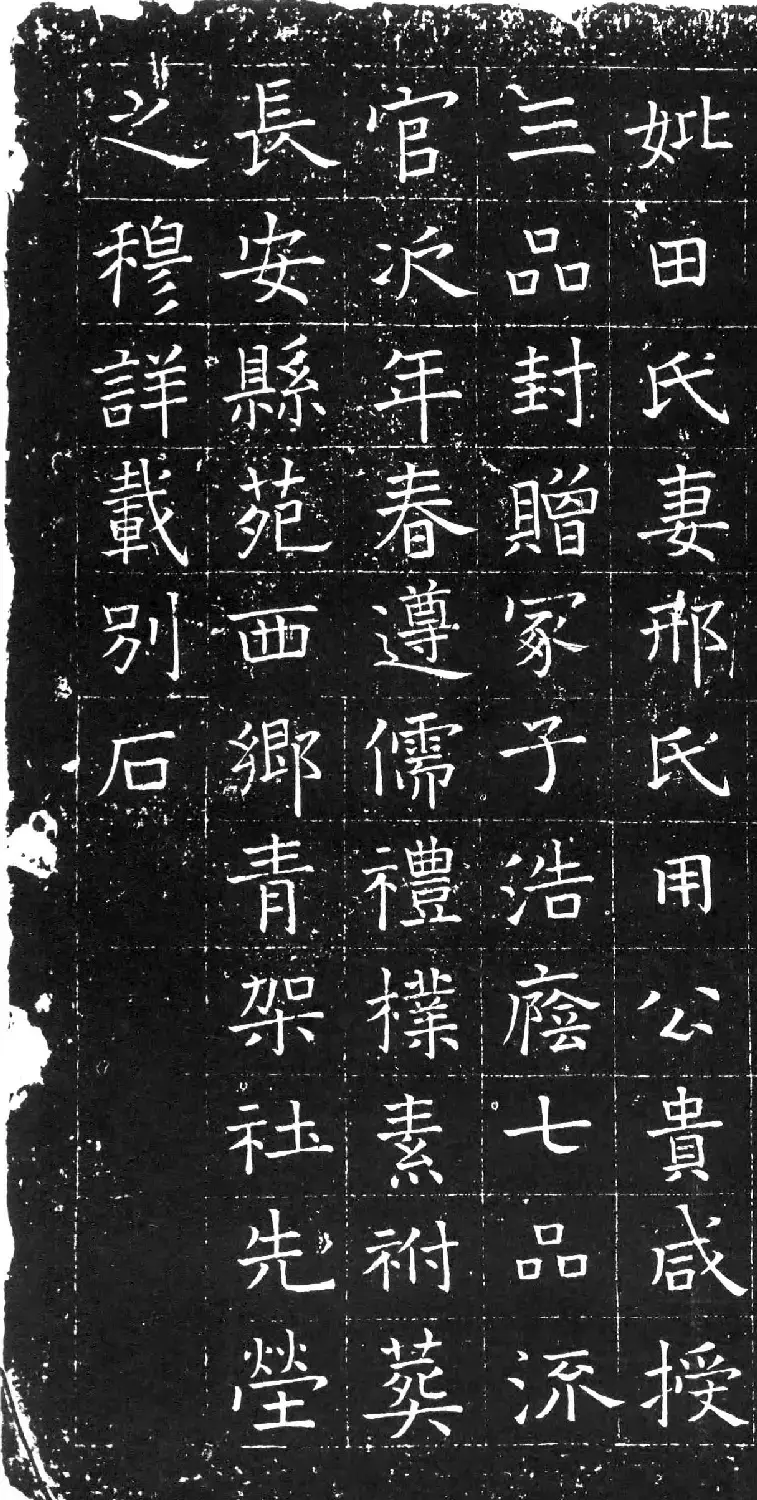 妣田氏妻邢氏用公貴咸授
三品封贈冢子浩廕七品流
官汳年春遵儒禮樸素祔葬
長安縣苑西鄉青架社先塋
之穆詳載別石